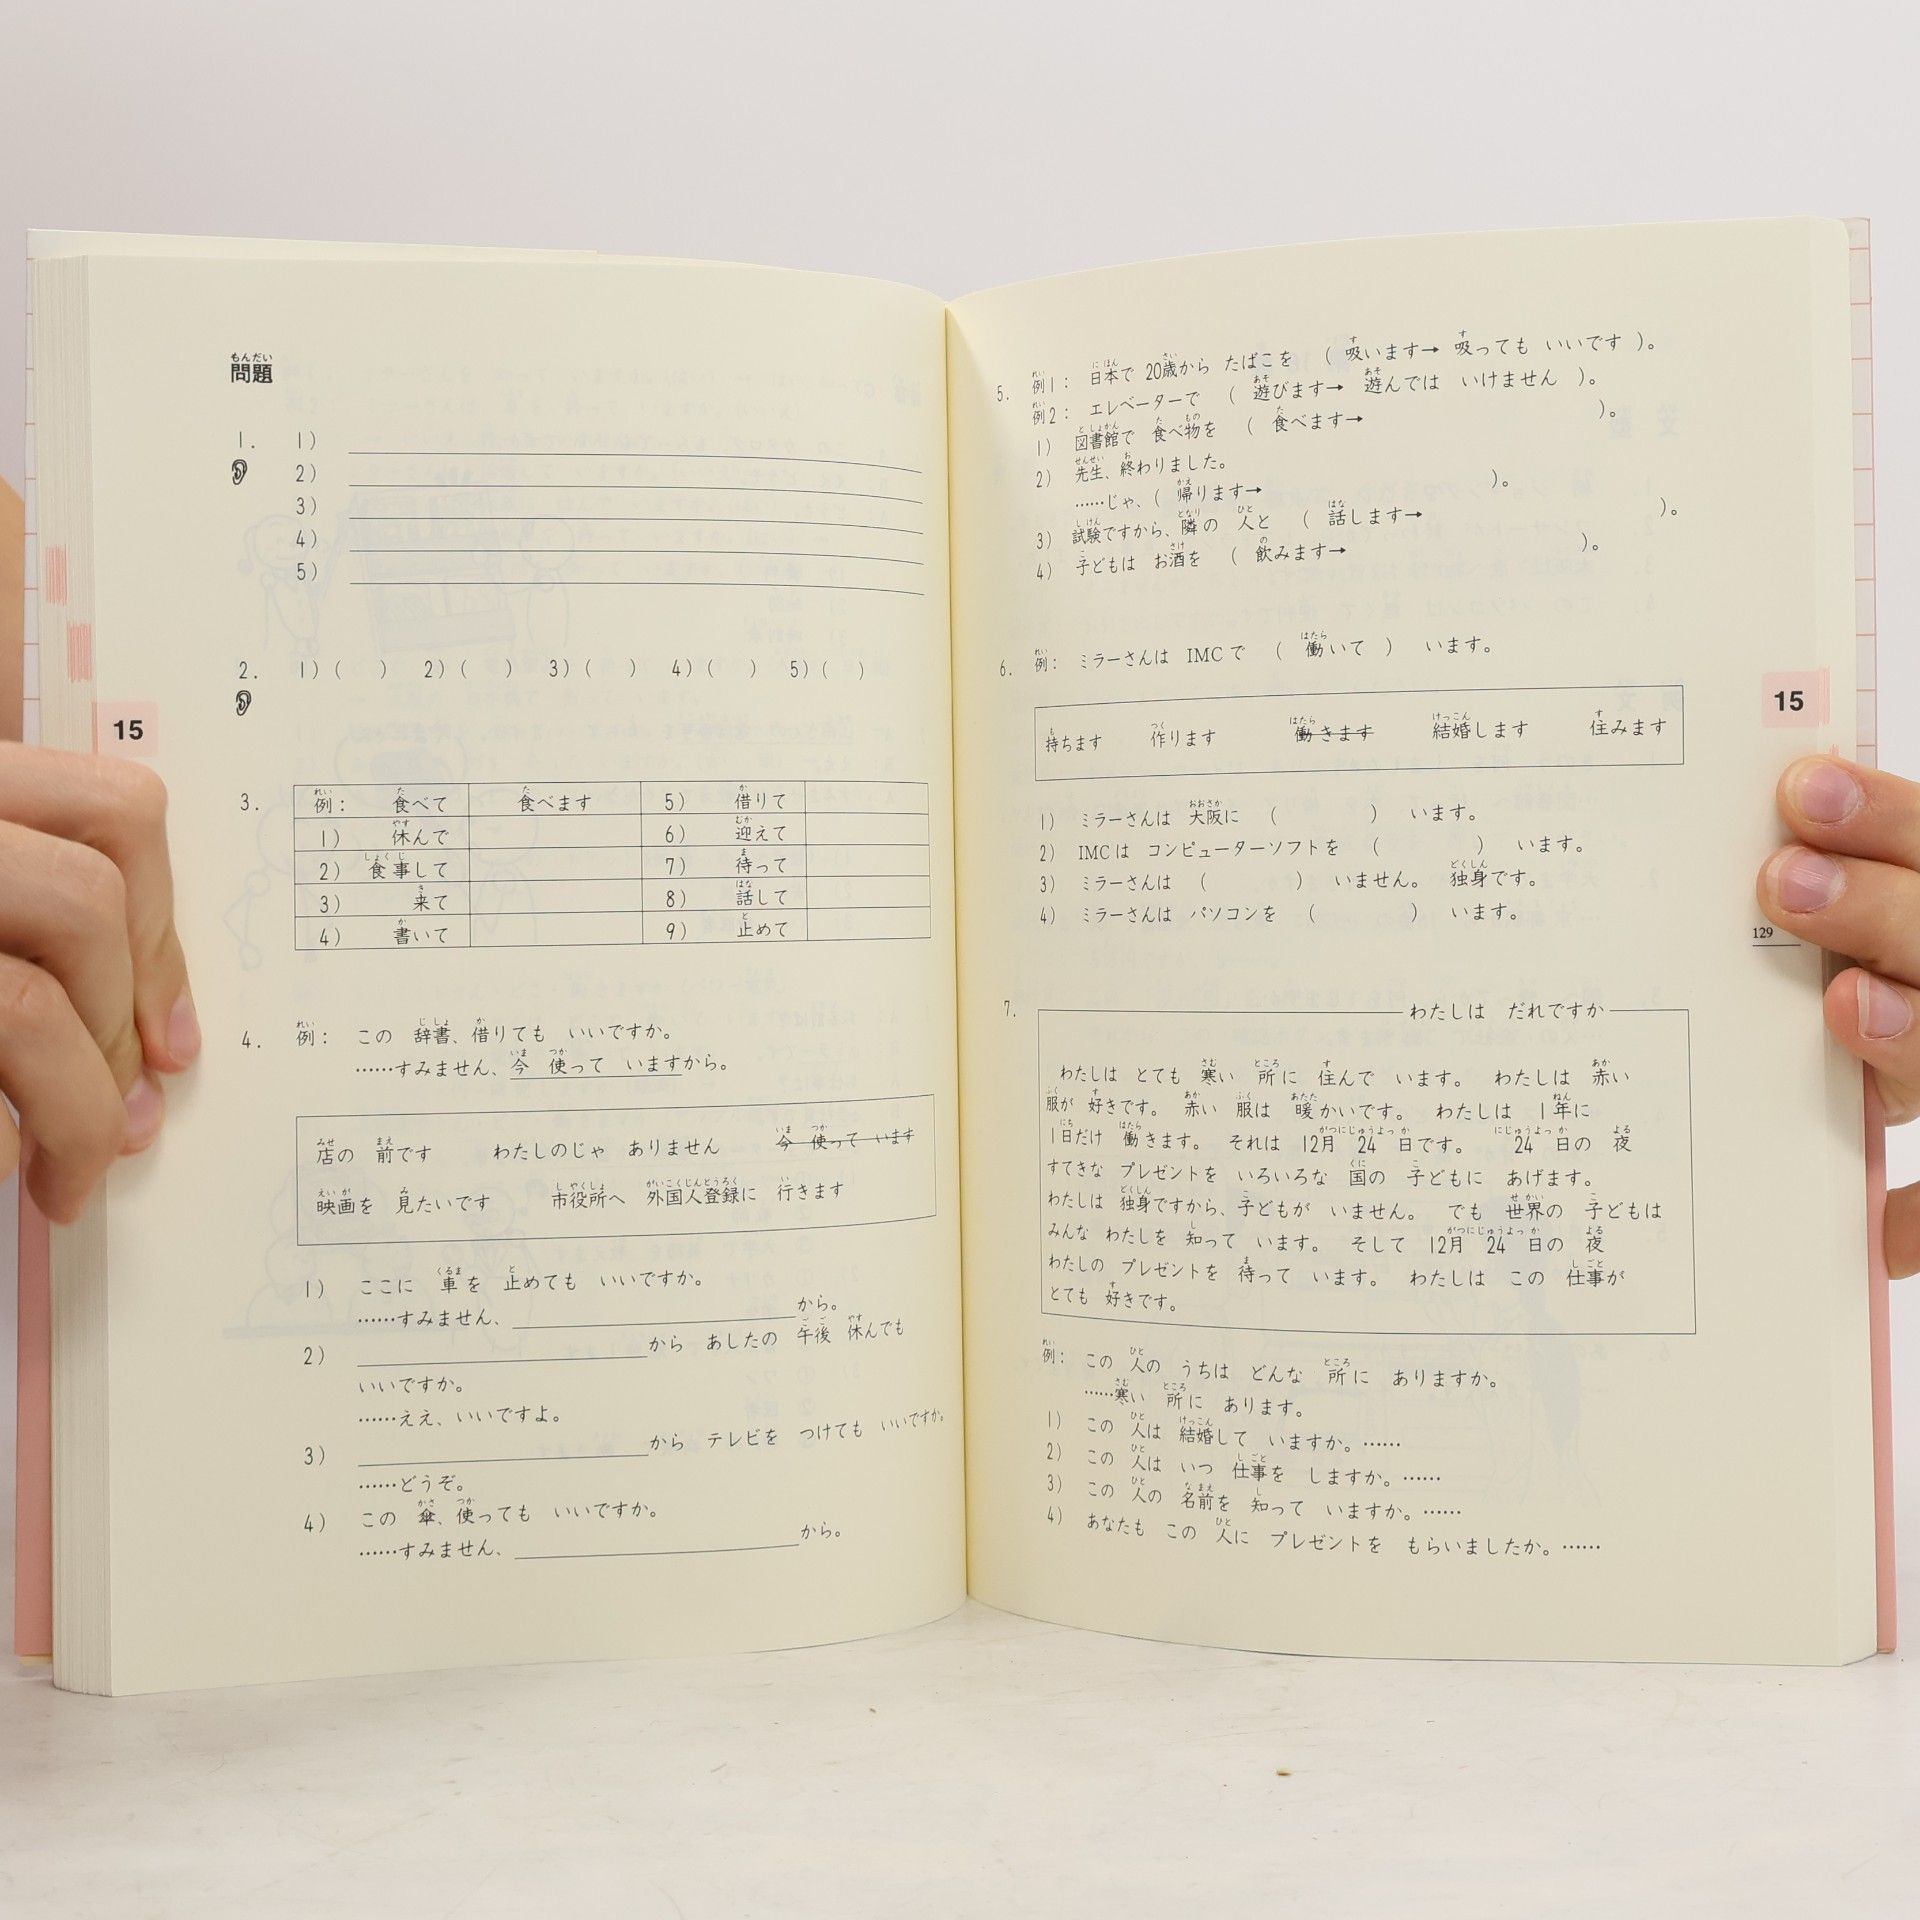 問題
1. 1)
2)
3)
4)
5)
2. 1) ( ) 2) ( ) 3) ( ) 4) ( ) 5) ( )
15
3. 例: 食べて 食べます 5) 借りて
1) 休んで 6) 迎えて
2) 食事して 7) 待って
3) 来て 8) 話して
4) 書いて 9) 止めて
4. 例: この 辞書、借りても いいですか。
……すみません、今 使って いますから。
店の 前です わたしのじゃ ありません 今 使って います
映画を 見たいです 市役所へ 外国人登録に 行きます
1) ここに 車を 止めても いいですか。
……すみません、 から。
2) から あしたの 午後 休んでも
いいですか。
……ええ、いいですよ。
3) から テレビを つけても いいですか。
……どうぞ。
4) この 傘、使っても いいですか。
……すみません、 から。
5. 例1: 日本で 20歳から たばこを ( 吸います→ 吸っても いいです )。
例2: エレベーターで ( 遊びます→ 遊んでは いけません )。
1) 図書館で 食べ物を ( 食べます→ )。
2) 先生、終わりました。
……じゃ、( 帰ります→ )。
3) 試験ですから、隣の 人と ( 話します→ )。
4) 子どもは お酒を ( 飲みます→ )。
6. 例: ミラーさんは IMCで ( 働いて ) います。
持ちます 作ります 働きます 結婚します 住みます
1) ミラーさんは 大阪に ( ) います。
2) IMCは コンピューターソフトを ( ) います。
3) ミラーさんは ( ) いません。 独身です。
4) ミラーさんは パソコンを ( ) います。
15
129
7. わたしは だれですか
わたしは とても 寒い 所に 住んで います。 わたしは 赤い
服が 好きです。 赤い 服は 暖かいです。 わたしは 1年に
1日だけ 働きます。 それは 12月 24日です。 24日の 夜
すてきな プレゼントを いろいろな 国の 子どもに あげます。
わたしは 独身ですから、子どもが いません。 でも 世界の 子どもは
みんな わたしを 知って います。 そして 12月 24日の 夜
わたしの プレゼントを 待って います。 わたしは この 仕事が
とても 好きです。
例: この 人の うちは どんな 所に ありますか。
……寒い 所に あります。
1) この 人は 結婚して いますか。……
2) この 人は いつ 仕事を しますか。……
3) この 人の 名前を 知って いますか。……
4) あなたも この 人に プレゼントを もらいましたか。……